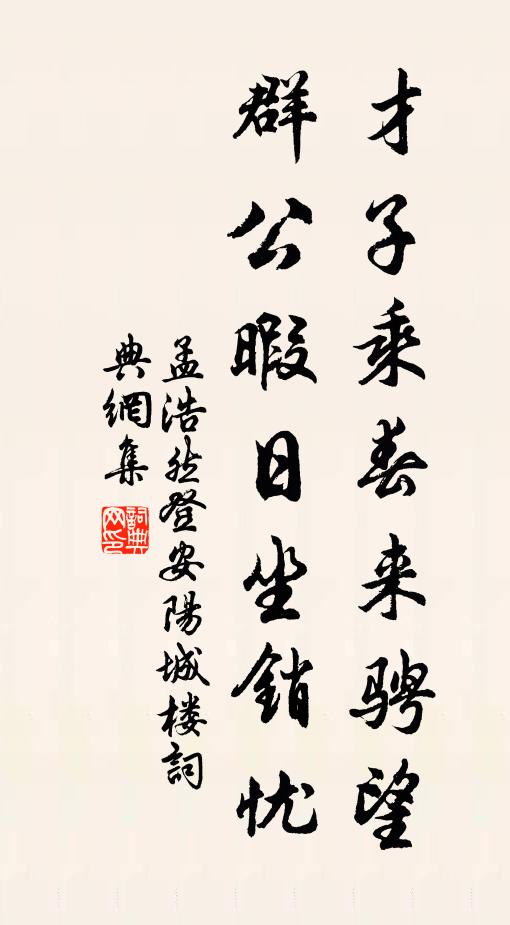 才子乘春来骋望
群公暇日坐销忧
孟浩然登安陽城楼詞
典網集
詞典网印